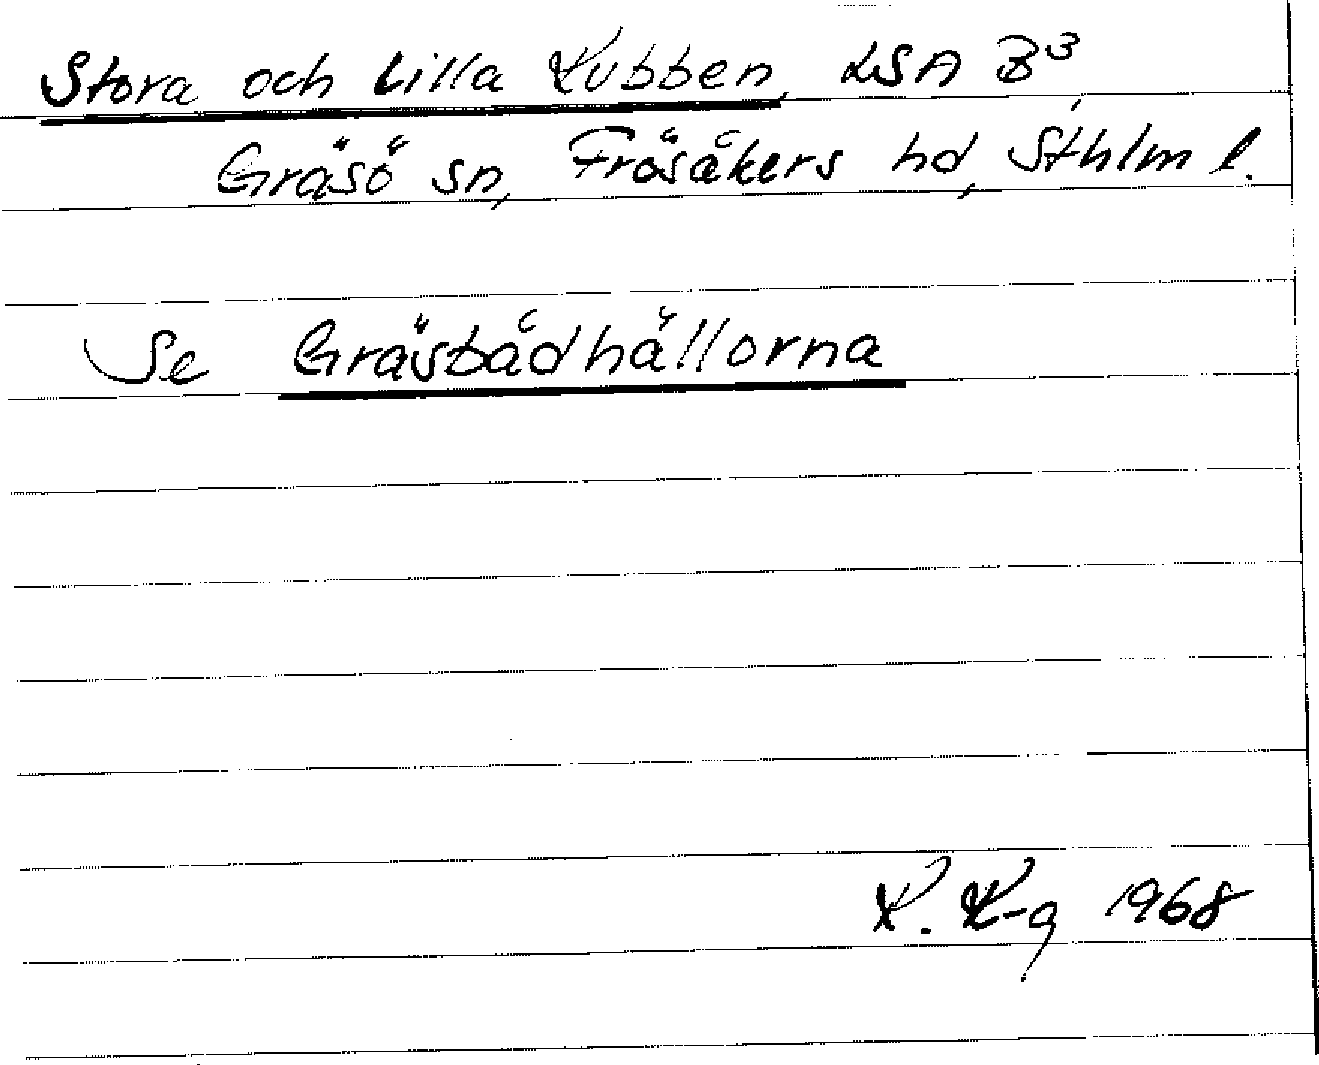 Stora och Lilla Kubben, LSA B³,
Gräsö sn, Frösåkers hd, Sthlm l.
Se Gräsbådhällorna
K. K-g 1968